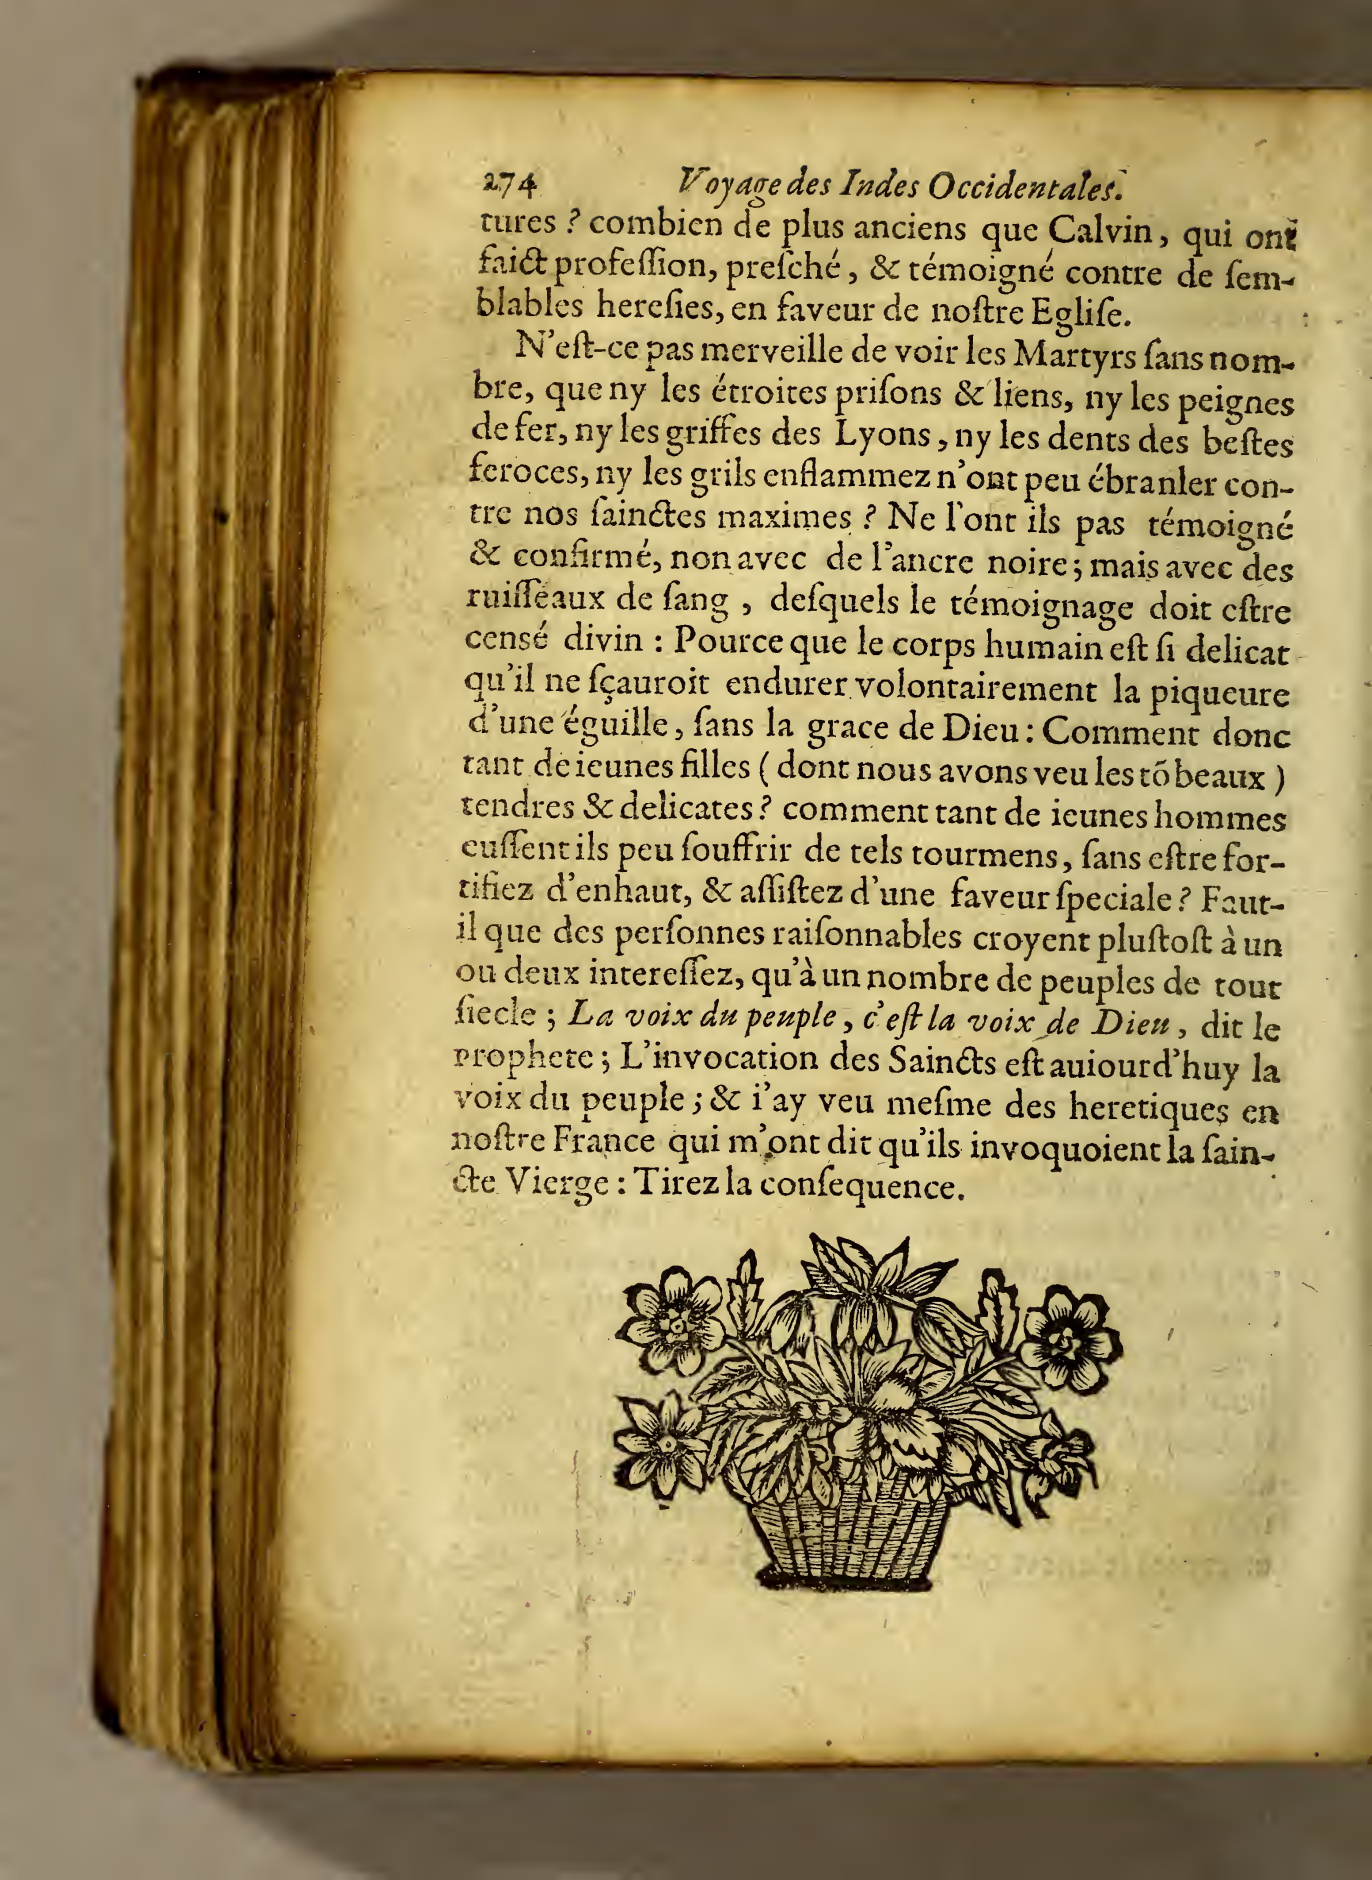 274 Voyage des Indes Occidentales.
tures ? combien de plus anciens que Calvin, qui ont
faict profeſſion, preſché, & témoigné contre de ſem-
blables hereſies, en faveur de noſtre Egliſe.
N'eſt-ce pas merveille de voir les Martyrs ſans nom-
bre, que ny les étroites priſons & liens, ny les peignes
de fer, ny les griffes des Lyons, ny les dents des beſtes
feroces, ny les grils enflammez n'ont peu ébranler con-
tre nos ſainctes maximes ? Ne l'ont ils pas témoigné
& confirmé, non avec de l'ancre noire ; mais avec des
ruiſſeaux de ſang, deſquels le témoignage doit eſtre
censé divin : Pource que le corps humain eſt ſi delicat
qu'il ne ſçauroit endurer volontairement la piqueure
d'une éguille, ſans la grace de Dieu : Comment donc
tant de ieunes filles ( dont nous avons veu les tõbeaux )
tendres & delicates ? comment tant de ieunes hommes
euſſent ils peu ſouffrir de tels tourmens, ſans eſtre for-
tifiez d'enhaut, & aſſiſtez d'une faveur ſpeciale ? Faut-
il que des perſonnes raiſonnables croyent pluſtoſt à un
ou deux intereſſez, qu'à un nombre de peuples de tout
ſiecle ; La voix du peuple, c'eſt la voix de Dieu, dit le
prophete ; L'invocation des Saincts eſt auiourd'huy la
voix du peuple ; & i'ay veu meſme des heretiques en
noſtre France qui m'ont dit qu'ils invoquoient la ſain-
cte Vierge : Tirez la conſequence.